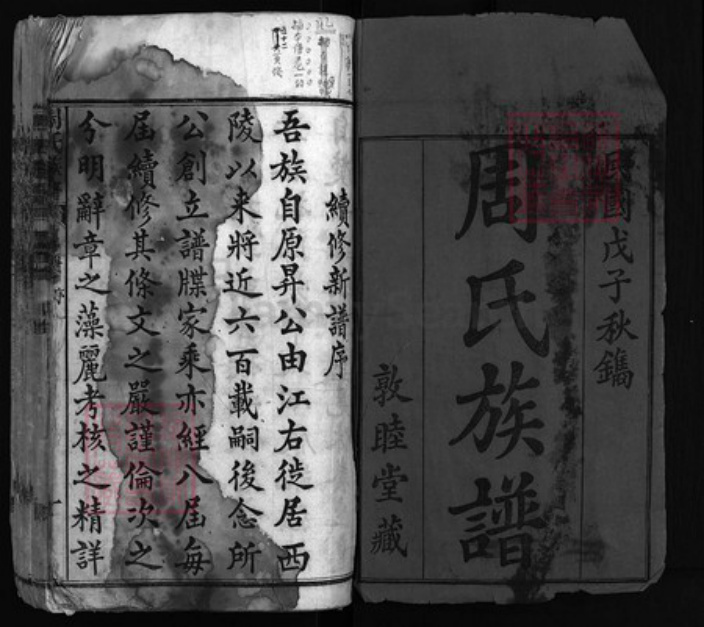 民國戊子秋鐫
周氏族譜
敦睦堂藏
續修新譜序
吾族自原昇公由江右徙居西
陵以来將近六百載嗣後念所
公創立譜牒家乘亦經八届每
届續修其條文之嚴謹倫次之
分明辭章之藻麗考核之精詳